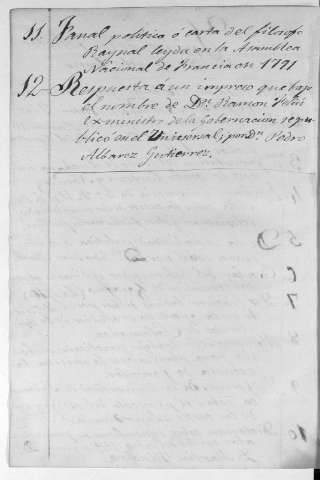 11. Fanal politico ó carta del filosofo
Raynal leyda en la Asamblea
Nacional de Francia en 1791
12 Respuesta a un impreso que bajo
el nombre de Dn. Ramon
Exministro de la Gobernacion se pu-
blicó en el Universal; por Dn. Pedro
Albarez Gutierrez.